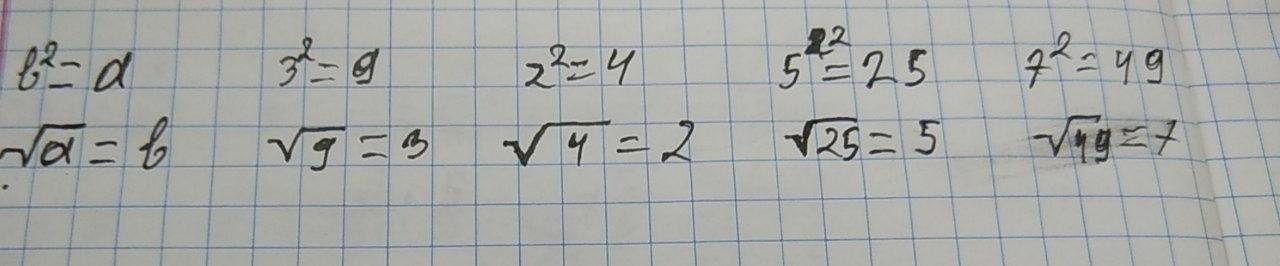 b² = a 3² = 9 2² = 4 5² = 25 7² = 49
√a = b √9 = 3 √4 = 2 √25 = 5 √49 = 7